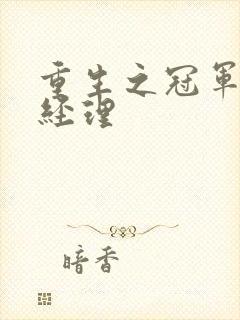 重生之冠軍
經理
暗香